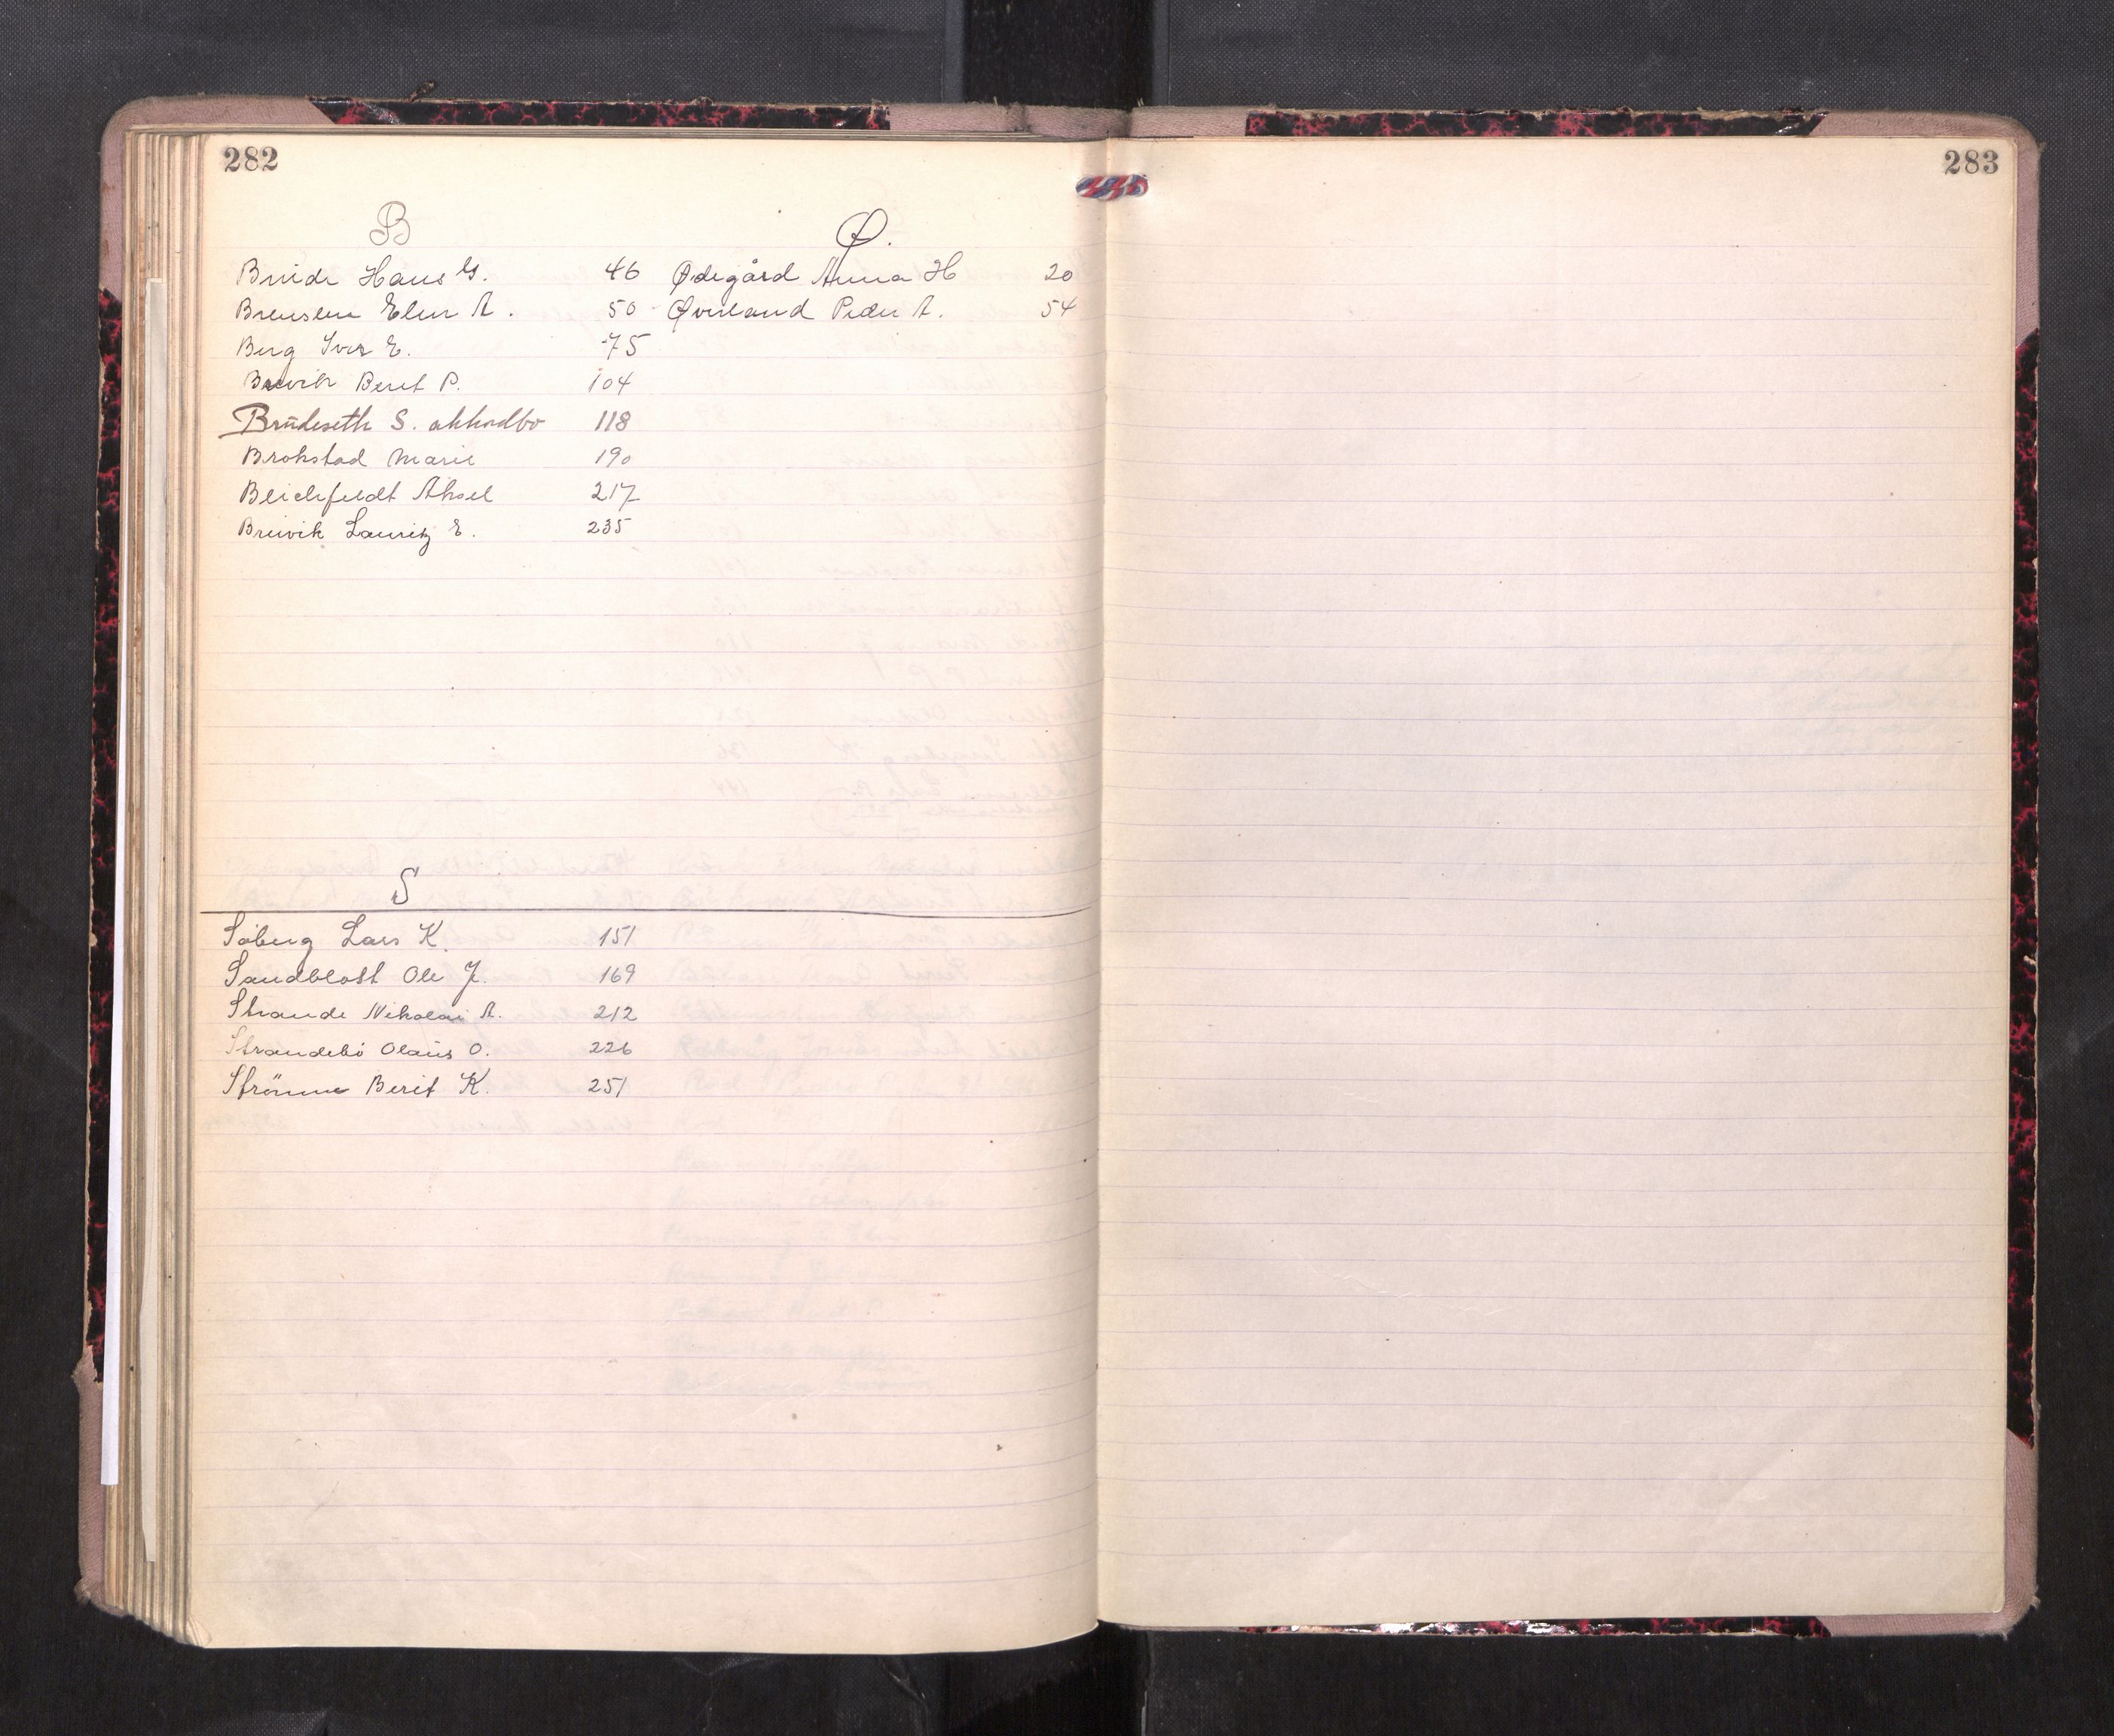 282
283
B
Brude Hans G. 46
Brenslen Elen A. 50
Berg Iver E. 75
Brevik Beret P. 104
Brūdeseth S. akkordbo 118
Brokstad Marie 190
Bleichfeldt Aksel 217
Breivik Lauritz E. 235
Ø.
Ødegård Anna H 20
Øverland Peder A. 54
S
Søberg Lars K. 151
Sandblost Ole J. 169
Strande Nikolai A. 212
Strandebö Olaūs O. 226
Strömme Berit K. 251